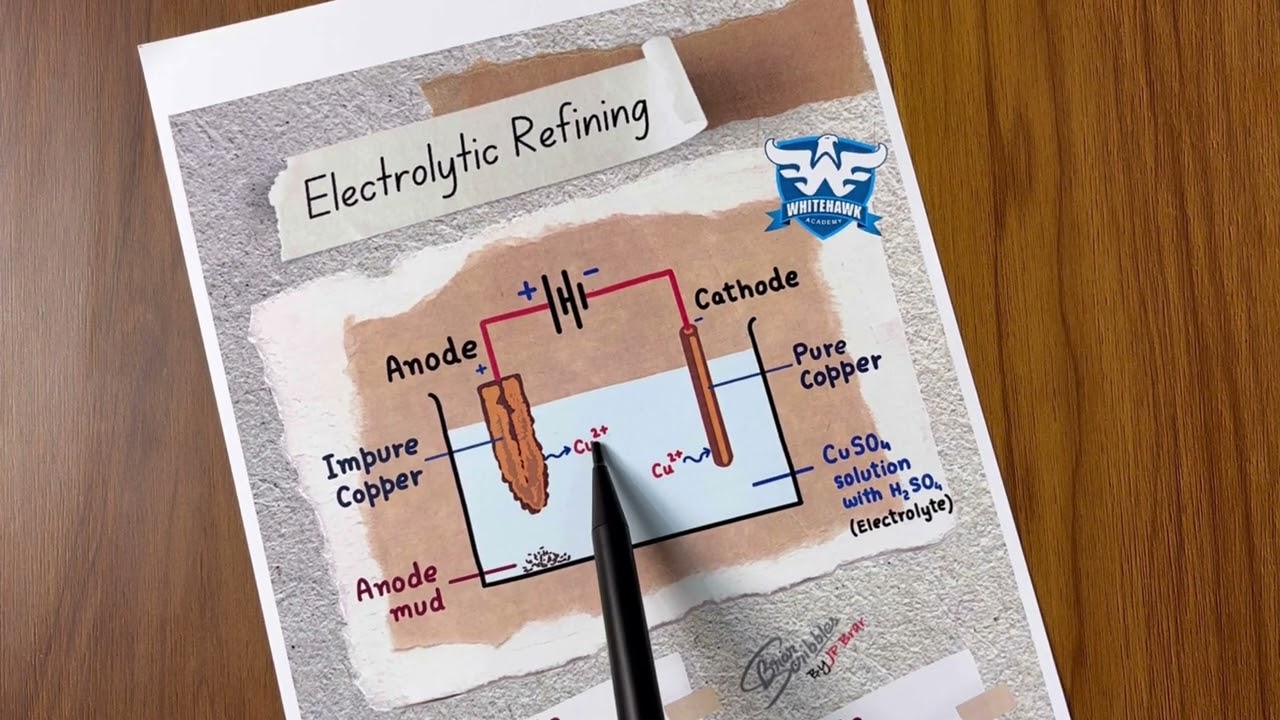 Electrolytic Refining
WHITEHAWK
ACADEMY
+
-
Cathode
-
Anode
+
Pure
Copper
Cu2+
Cu2+
Impure
Copper
CuSO₄
solution
with H₂SO₄
(Electrolyte)
Anode
mud
Brian
Scribbles
By JP Brar